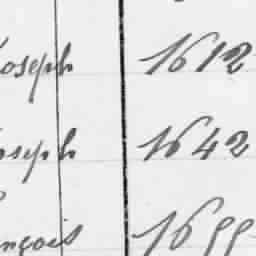 Joseph 1612
Joseph 1642
nçois 1699